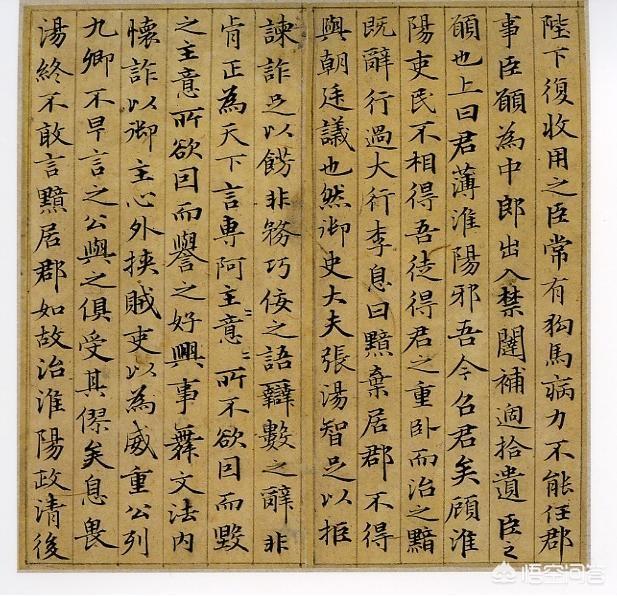 陛下復收用之臣常有狗馬病力不能任郡
事臣願為中郎出入禁闥補過拾遺臣之
願也上曰君薄淮陽邪吾今召君矣顧淮
陽吏民不相得吾徒得君之重臥而治之黯
既辭行過大行李息曰黯棄居郡不得
與朝廷議也然御史大夫張湯智足以拒
諫詐足以餝非務巧佞之語辯數之辭非
肯正為天下言專阿主〻意〻所不欲因而毀
之主意所欲因而譽之好興事舞文法內
懷詐以御主心外挾賊吏以為威重公列
九卿不早言之公與之俱受其僇矣息畏
湯終不敢言黯居郡如故治淮陽政清後
悟空问答